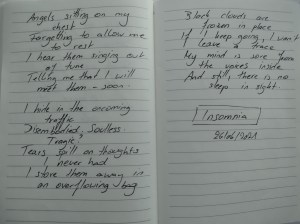 Angels sitting on my
chest
Forgetting to allow me
to rest
I hear them singing out
of tune
Telling me that I will
meet them - soon.
I hide in the oncoming
traffic
Disembodied, Soulless
Tears spill on thoughts
I never had
I store them away in
an overflowing bag
Black clouds are
frozen in place
If I keep going, I won't
leave a trace
My mind is sore from
the voices inside
And still, there is no
sleep in sight.
Insomnia
26/06/2021